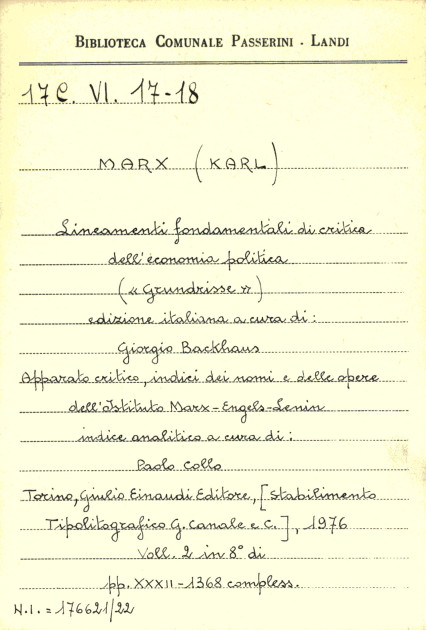 BIBLIOTECA COMUNALE PASSERINI - LANDI
17C. VI. 17-18
MARX (KARL)
Lineamenti fondamentali di critica
dell'economia politica
(« Grundrisse »)
edizione italiana a cura di:
Giorgio Backhaus
Apparato critico, indici dei nomi e delle opere
dell'Istituto Marx-Engels-Lenin
indice analitico a cura di:
Paolo Collo
Torino, Giulio Einaudi Editore, [Stabilimento
Tipolitografico G. Canale e C.], 1976
Voll. 2 in 8° di
pp. XXXII-1368 compless.
N.I. = 176621/22